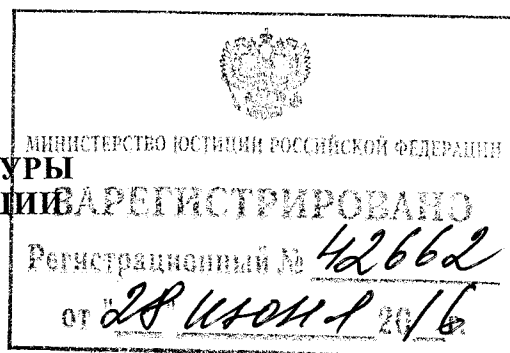 МИНИСТЕРСТВО ЮСТИЦИИ РОССИЙСКОЙ ФЕДЕРАЦИИ
УРЫ
ЦИИ ЗАРЕГИСТРИРОВАНО
Регистрационный № 42662
от "28" июня 2016г.